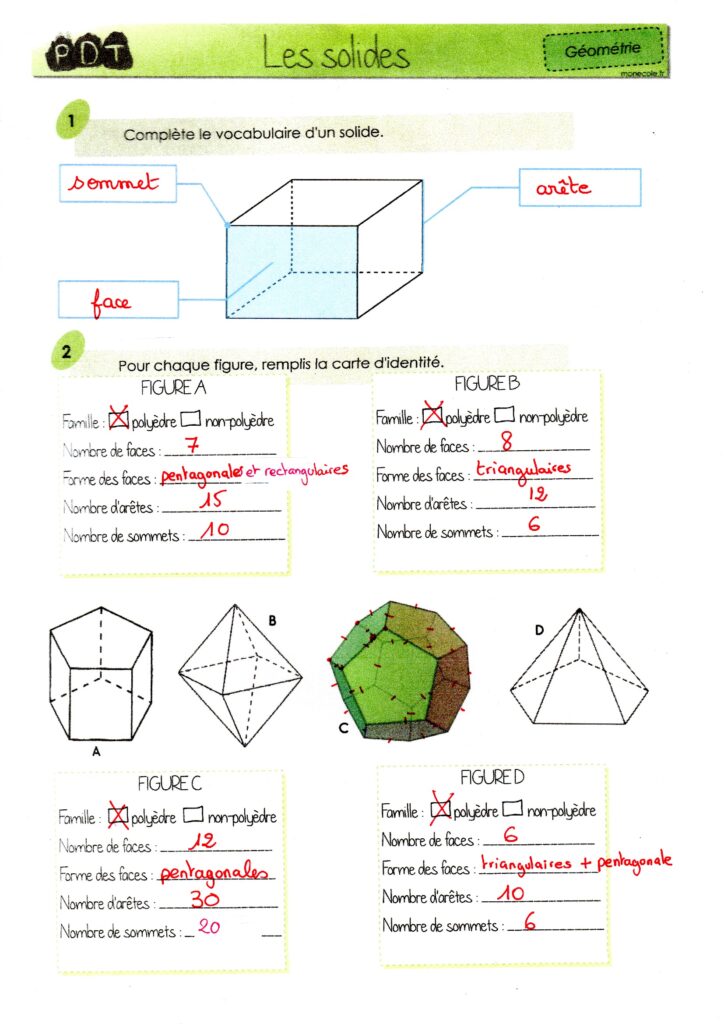 PDT
Les solides
Géométrie
monecole.fr
1
Complète le vocabulaire d'un solide.
sommet
arête
face
2
Pour chaque figure, remplis la carte d'identité.
FIGURE A
Famille : polyèdre non-polyèdre
Nombre de faces : 7
Forme des faces : pentagonales et rectangulaires
Nombre d'arêtes : 15
Nombre de sommets : 10
FIGURE B
Famille : polyèdre non-polyèdre
Nombre de faces : 8
Forme des faces : triangulaires
Nombre d'arêtes : 12
Nombre de sommets : 6
A
B
C
D
FIGURE C
Famille : polyèdre non-polyèdre
Nombre de faces : 12
Forme des faces : pentagonales
Nombre d'arêtes : 30
Nombre de sommets : 20
FIGURE D
Famille : polyèdre non-polyèdre
Nombre de faces : 6
Forme des faces : triangulaires + pentagonale
Nombre d'arêtes : 10
Nombre de sommets : 6